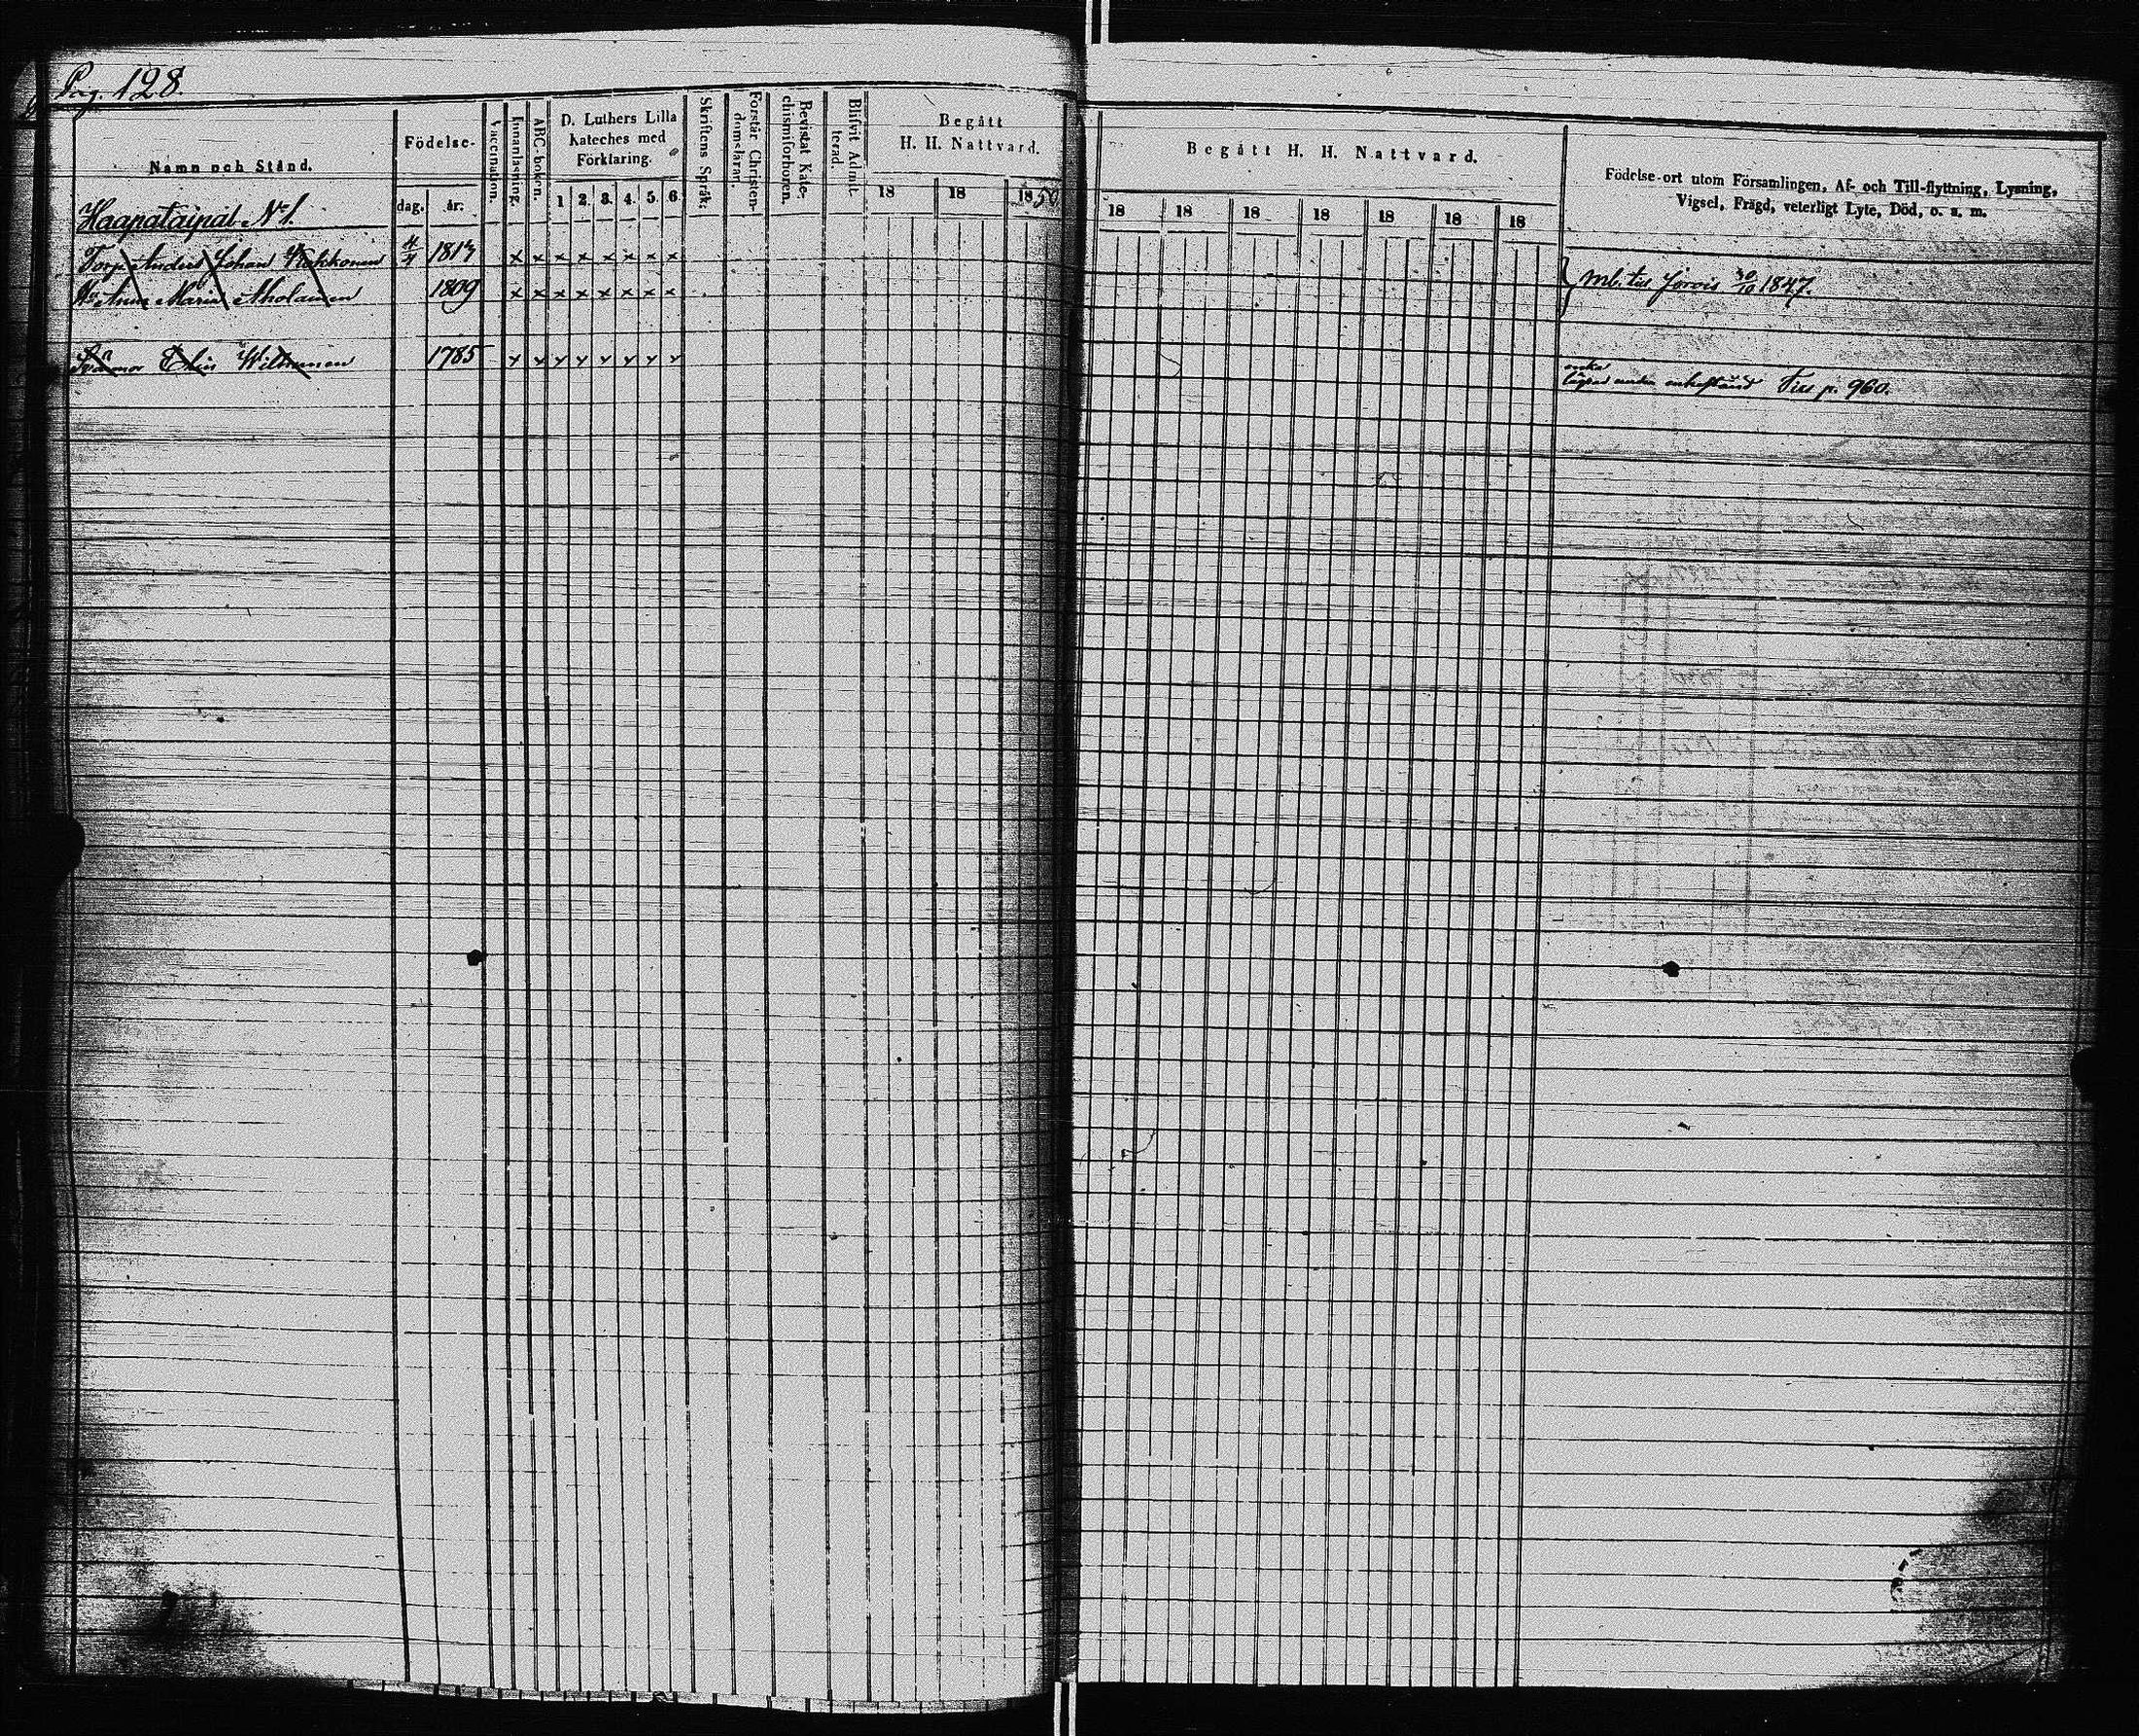 Pag. 128.
Namn och Stånd.
Födelse-
dag.
år.
Vaccination.
Innanläsning.
ABC-boken.
D. Luthers Lilla
Kateches med
Förklaring.
1 2. 3. 4. 5. 6
Skriftens Språk.
Förstår Christen-
domslärar.
Bevistat Kate-
chismiförhören.
Blifvit Admit-
terad.
Begått
H. H. Nattvard.
18 18 1850
Begått H. H. Nattvard.
18 18 18 18 18 18 18
Födelse-ort utom Församlingen, Af- och Till-flyttning, Lysning,
Vigsel, Frägd, veterligt Lyte, Död, o. s. m.
Haapataipal No 1.
Torp. Anders Johan 4/4 181 x x x x x x x x
Hu Anna Maria Aholainen 1809 x x x x x x x x
mb. till Jorois 30/10 1847.
Elin 1785 x x x x x x x x
enka
Till p. 960.